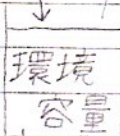 環境
容量